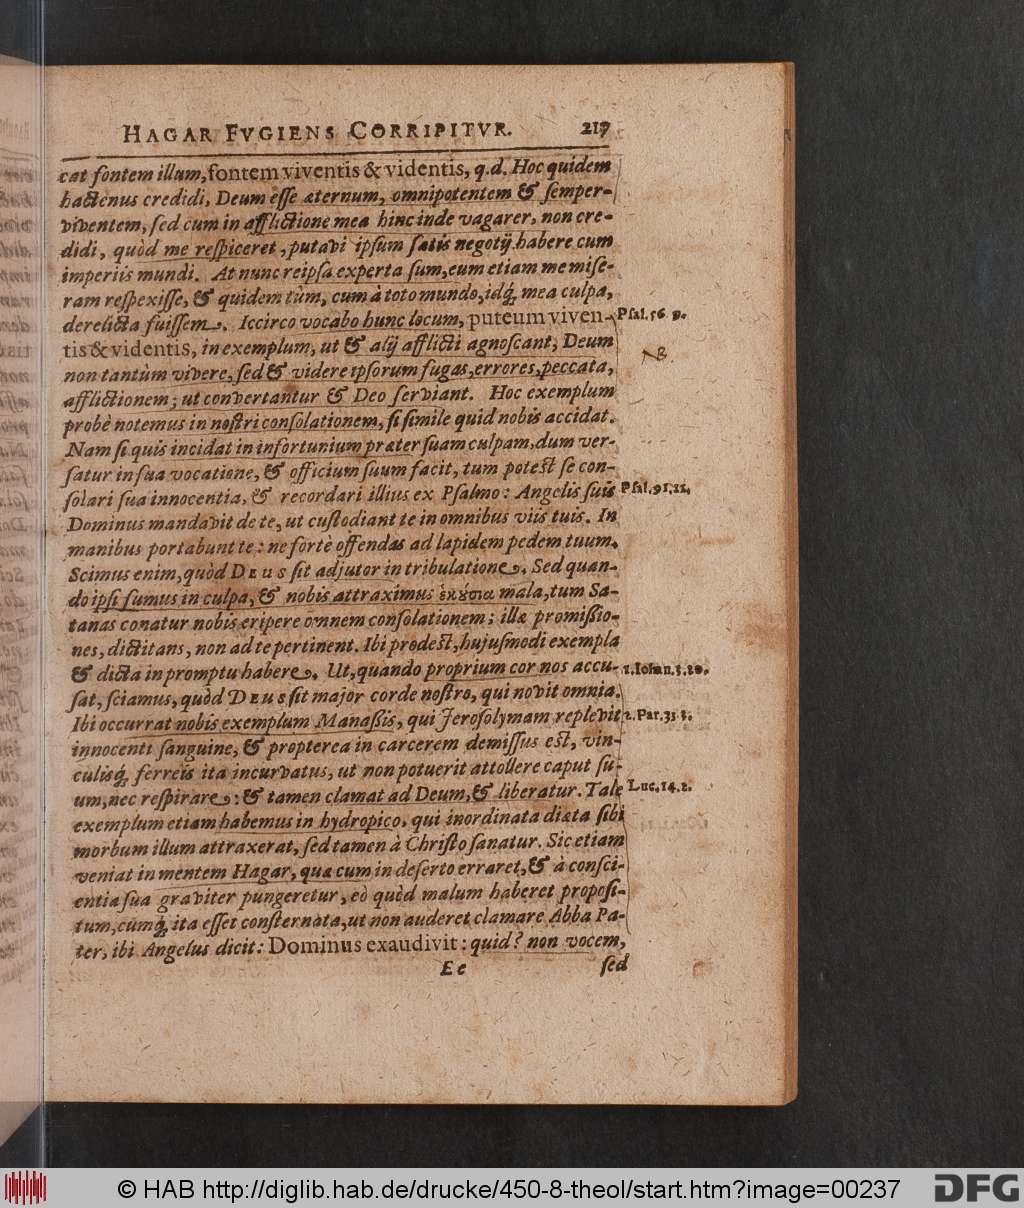 HAGAR FVGIENS CORRIPITVR. 217
cat fontem illum, fontem viventis & videntis, q.d. Hoc quidem
hactenus credidi, Deum esse æternum, omnipotentem & semper-
viventem, sed cum in afflictione mea hinc inde vagarer, non cre-
didi, quòd me respiceret, putavi ipsum satis negotij habere cum
imperiis mundi. At nunc reipsa experta sum, eum etiam me mise-
ram respexisse, & quidem tùm, cum à toto mundo, idq́; mea culpa,
derelicta fuissem. Iccirco vocabo hunc locum, puteum viven-
Psal. 56. 9.
tis & videntis, in exemplum, ut & alij afflicti agnoscant; Deum
NB
non tantùm vivere, sed & videre ipsorum fugas, errores, peccata,
afflictionem; ut convertantur & Deo serviant. Hoc exemplum
probè notemus in nostri consolationem, si simile quid nobis accidat.
Nam si quis incidat in infortunium præter suam culpam, dum ver-
satur in sua vocatione, & officium suum facit, tum potest se con-
solari sua innocentia, & recordari illius ex Psalmo: Angelis suis
Psal. 91. 11.
Dominus mandavit de te, ut custodiant te in omnibus viis tuis. In
manibus portabunt te: ne fortè offendas ad lapidem pedem tuum.
Scimus enim, quòd DEUS sit adjutor in tribulatione. Sed quan-
do ipsi sumus in culpa, & nobis attraximus ἑκούσια mala, tum Sa-
tanas conatur nobis eripere omnem consolationem; illæ promissio-
nes, dictitans, non ad te pertinent. Ibi prodest, hujusmodi exempla
& dicta in promptu habere. Ut, quando proprium cor nos accu-
1. Iohan. 3. 20.
sat, sciamus, quòd DEUS sit major corde nostro, qui novit omnia.
Ibi occurrat nobis exemplum Manassis, qui Jerosolymam replevit
2. Par. 33
innocenti sanguine, & propterea in carcerem demissus est, vin-
culisq́; ferreis ita incurvatus, ut non potuerit attollere caput su-
um, nec respirare: & tamen clamat ad Deum, & liberatur. Tale
Luc. 14. 2.
exemplum etiam habemus in hydropico, qui inordinata diæta sibi
morbum illum attraxerat, sed tamen à Christo sanatur. Sic etiam
veniat in mentem Hagar, quæ cum in deserto erraret, & à consci-
entia sua graviter pungeretur, eò quòd malum haberet proposi-
tum, cumq́; ita esset consternata, ut non auderet clamare Abba Pa-
ter, ibi Angelus dicit: Dominus exaudivit: quid? non vocem,
Ee sed
© HAB http://diglib.hab.de/drucke/450-8-theol/start.htm?image=00237
DFG